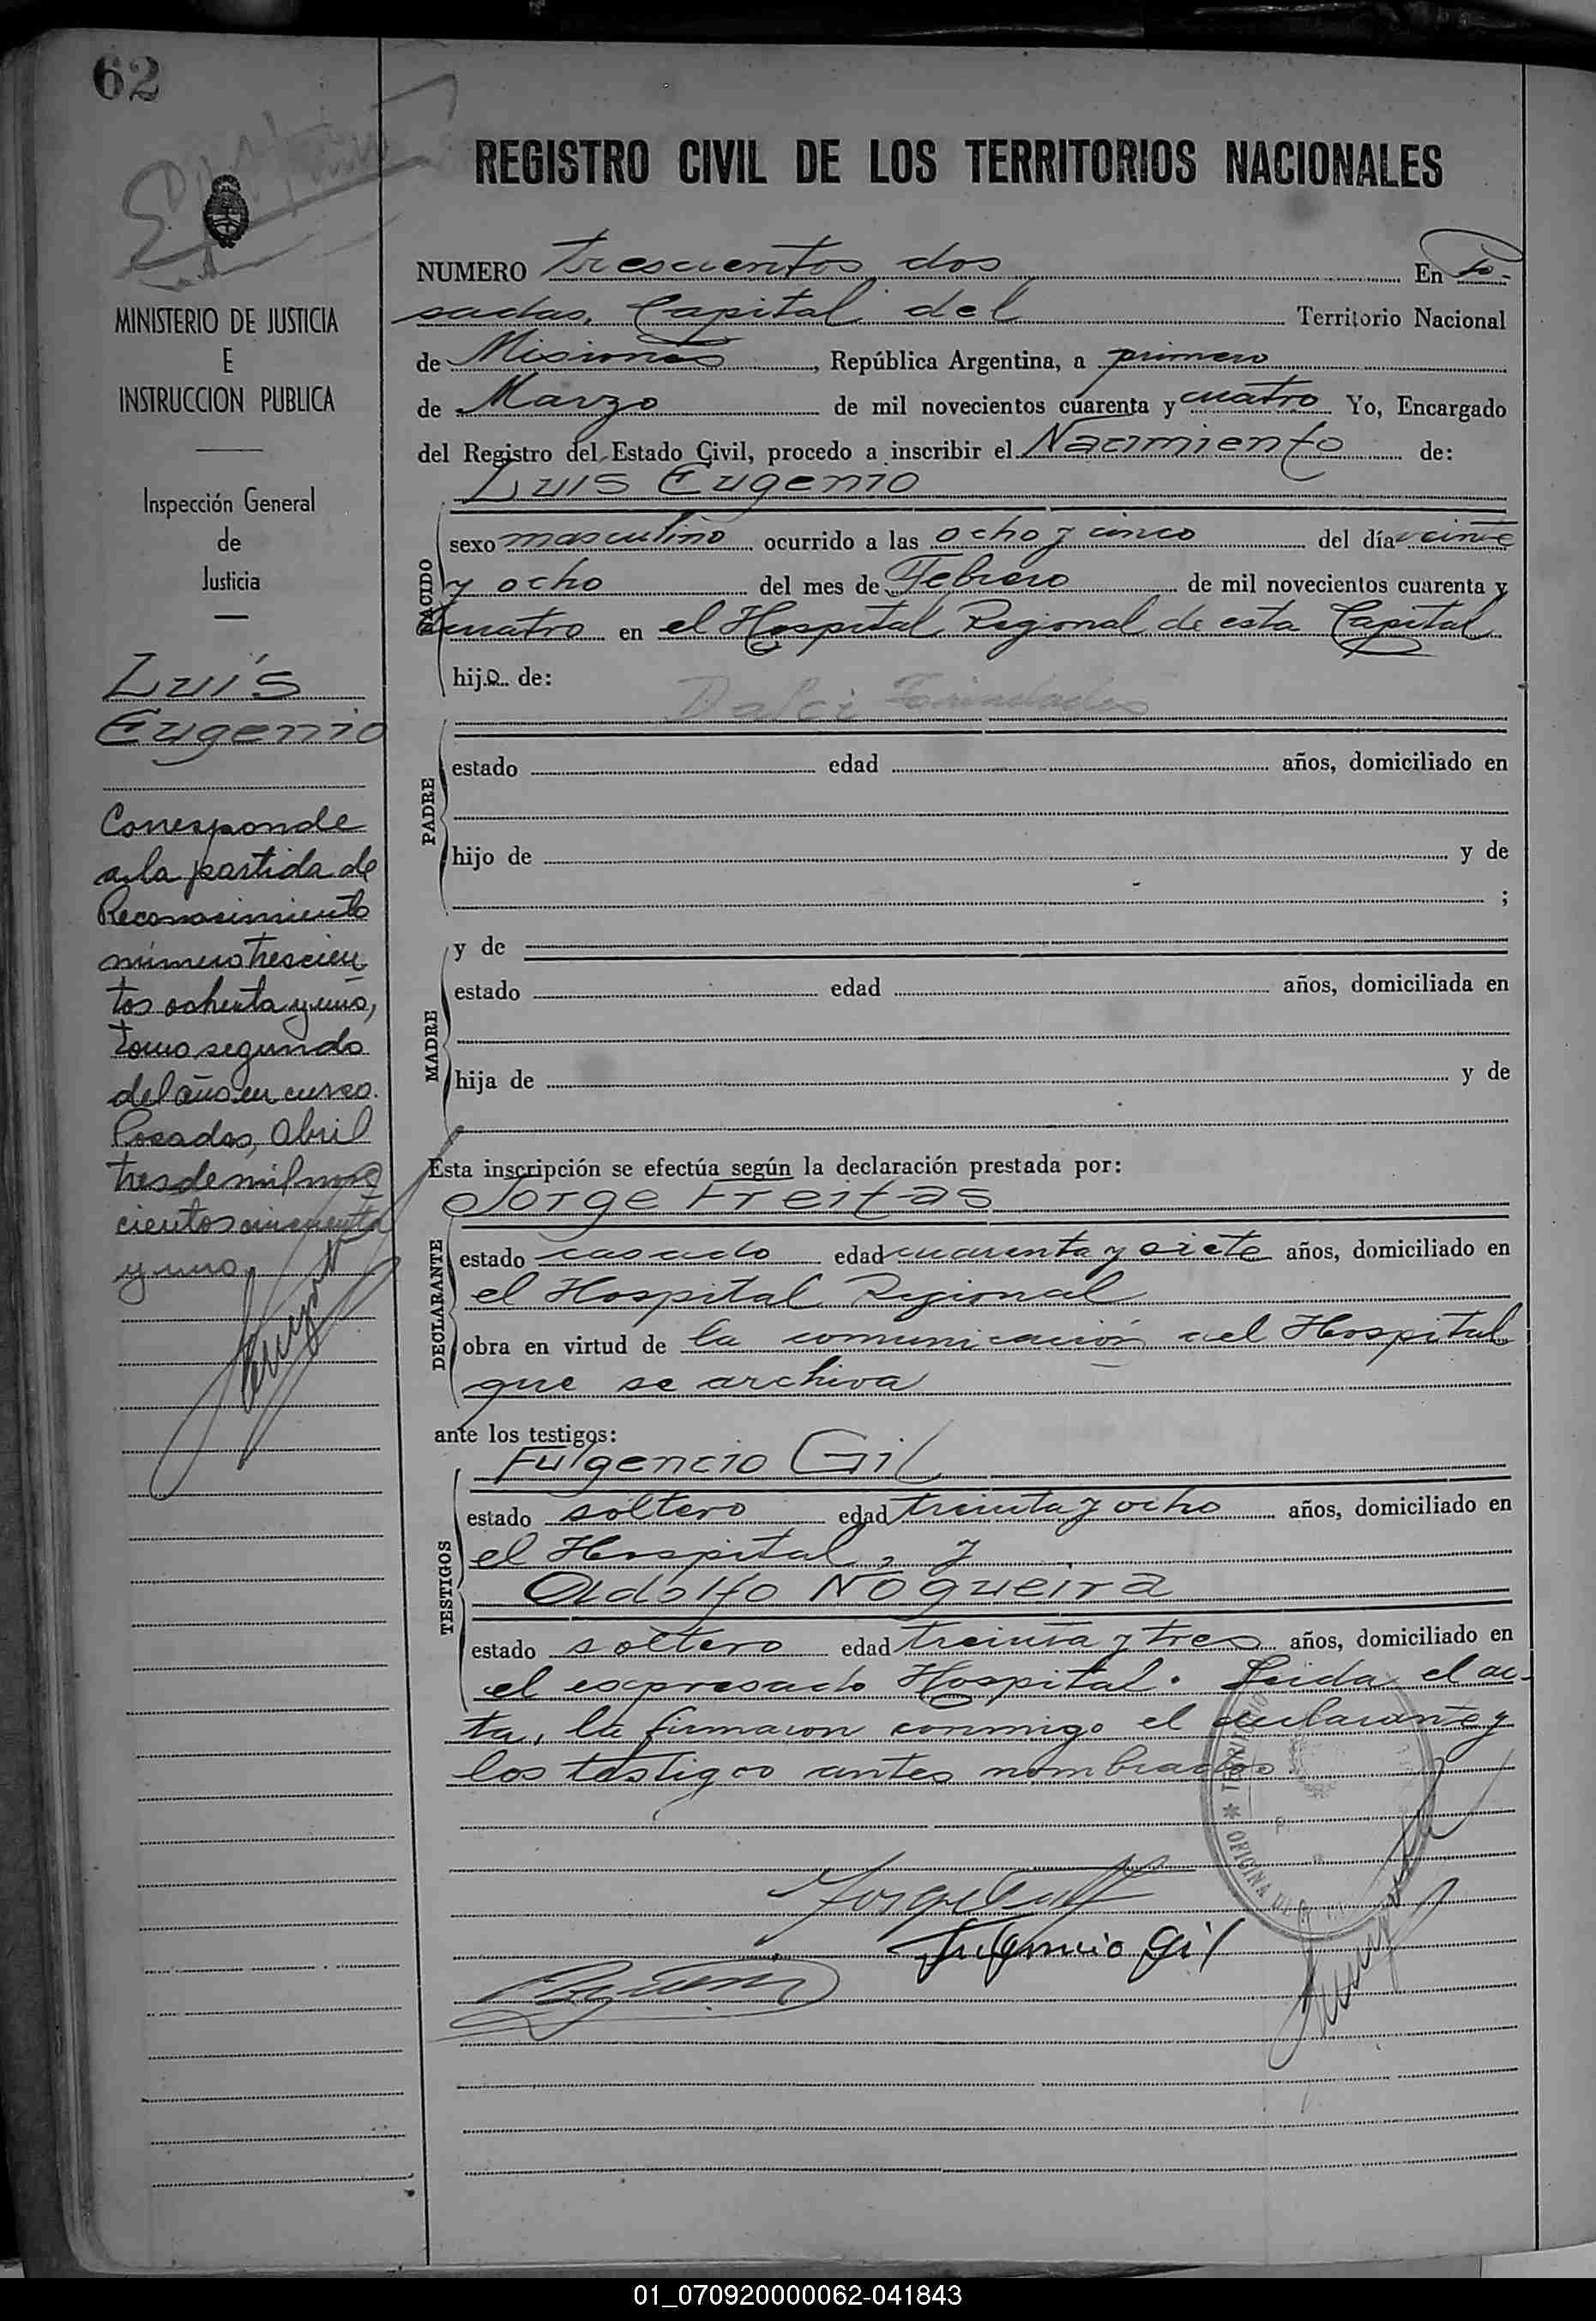 62
REGISTRO CIVIL DE LOS TERRITORIOS NACIONALES
MINISTERIO DE JUSTICIA
E
INSTRUCCION PUBLICA
Inspección General
de
Justicia
Luis
Eugenio
Corresponde
a la partida de
Reconocimiento
número trescien
tos ochenta y uno,
tomo segundo
del año en curso.
Posadas, Abril
tres de mil nove
cientos cincuenta
y uno
NUMERO trescientos dos En Po-
sadas, Capital del Territorio Nacional
de Misiones, República Argentina, a primero
de Marzo de mil novecientos cuarenta y cuatro Yo, Encargado
del Registro del Estado Civil, procedo a inscribir el Nacimiento de:
Luis Eugenio
NACIDO
sexo masculino ocurrido a las ocho y cinco del día veinte
y ocho del mes de Febrero de mil novecientos cuarenta y
cuatro en el Hospital Regional de esta Capital
hijo de:
Dalci Trindades
PADRE
estado edad años, domiciliado en
hijo de y de
;
y de
MADRE
estado edad años, domiciliada en
hija de y de
Esta inscripción se efectúa según la declaración prestada por:
Jorge Freitas
DECLARANTE
estado casado edad cuarenta y siete años, domiciliado en
el Hospital Regional
obra en virtud de la comunicación del Hospital
que se archiva
ante los testigos:
Fulgencio Gil
TESTIGOS
estado soltero edad treinta y ocho años, domiciliado en
el Hospital, y
Adolfo Nogueira
estado soltero edad treinta y tres años, domiciliado en
el expresado Hospital. Leida el ac-
ta, la firmaron conmigo el declarante y
los testigos antes nombrados
OFICINA
Fulgencio Gil
01_070920000062-041843